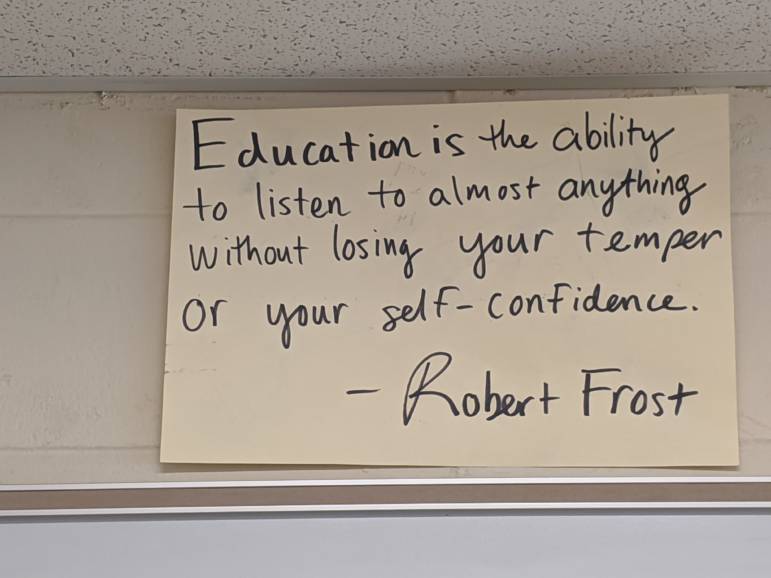 Education is the ability
to listen to almost anything
without losing your temper
or your self-confidence.
- Robert Frost